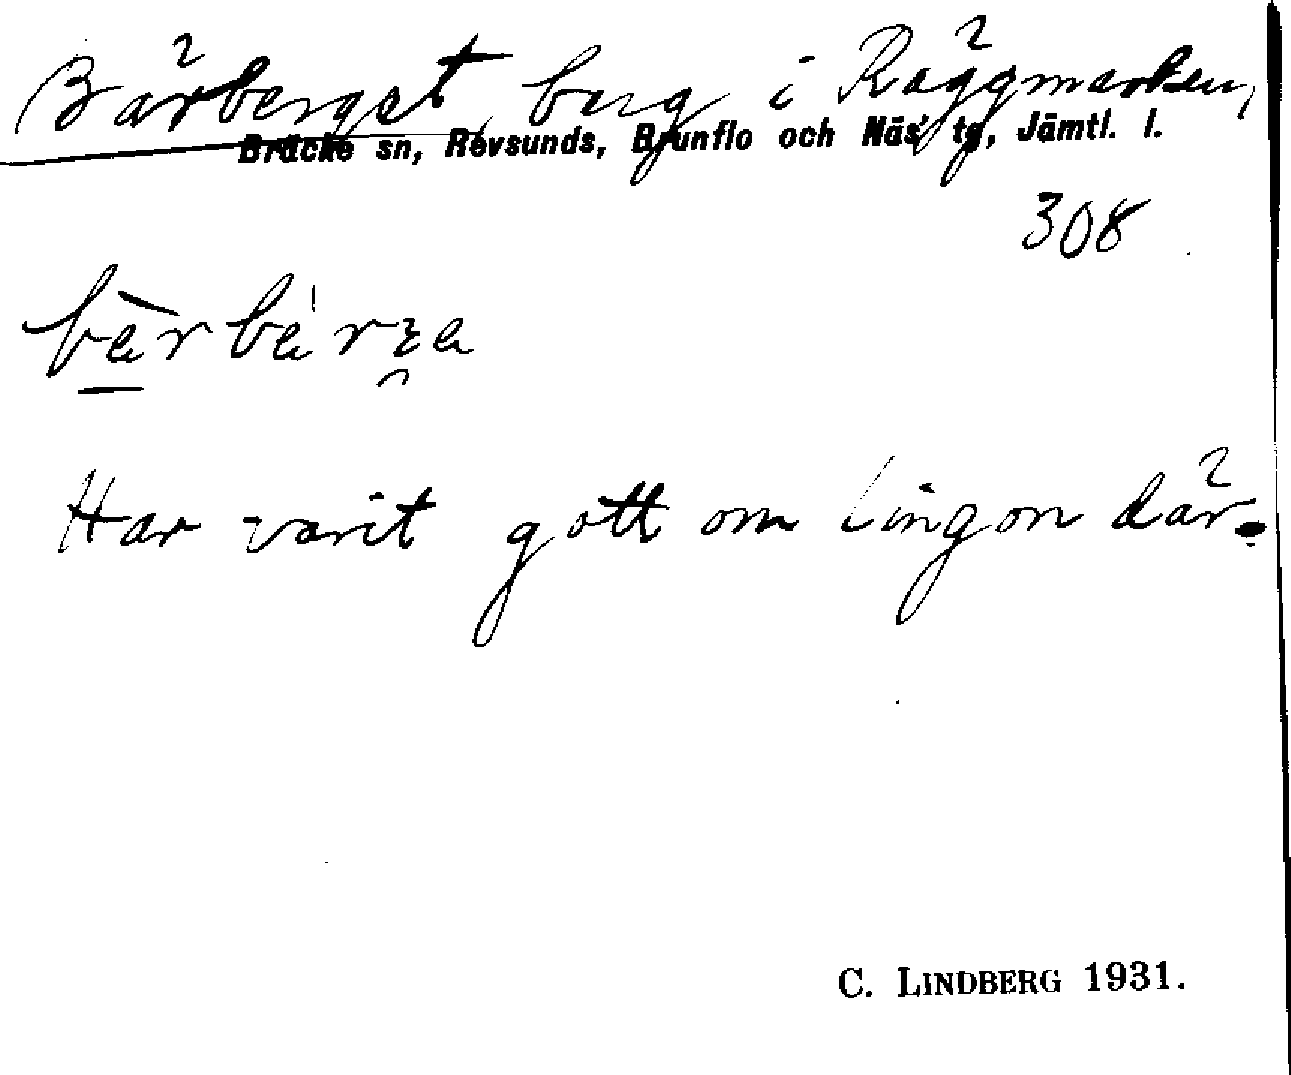 Bärberget, berg i Räggmarken,
Bräcke sn, Revsunds, Brunflo och Näs' tg, Jämtl. l.
308
Har varit gott om lingon där.
C. LINDBERG 1931.